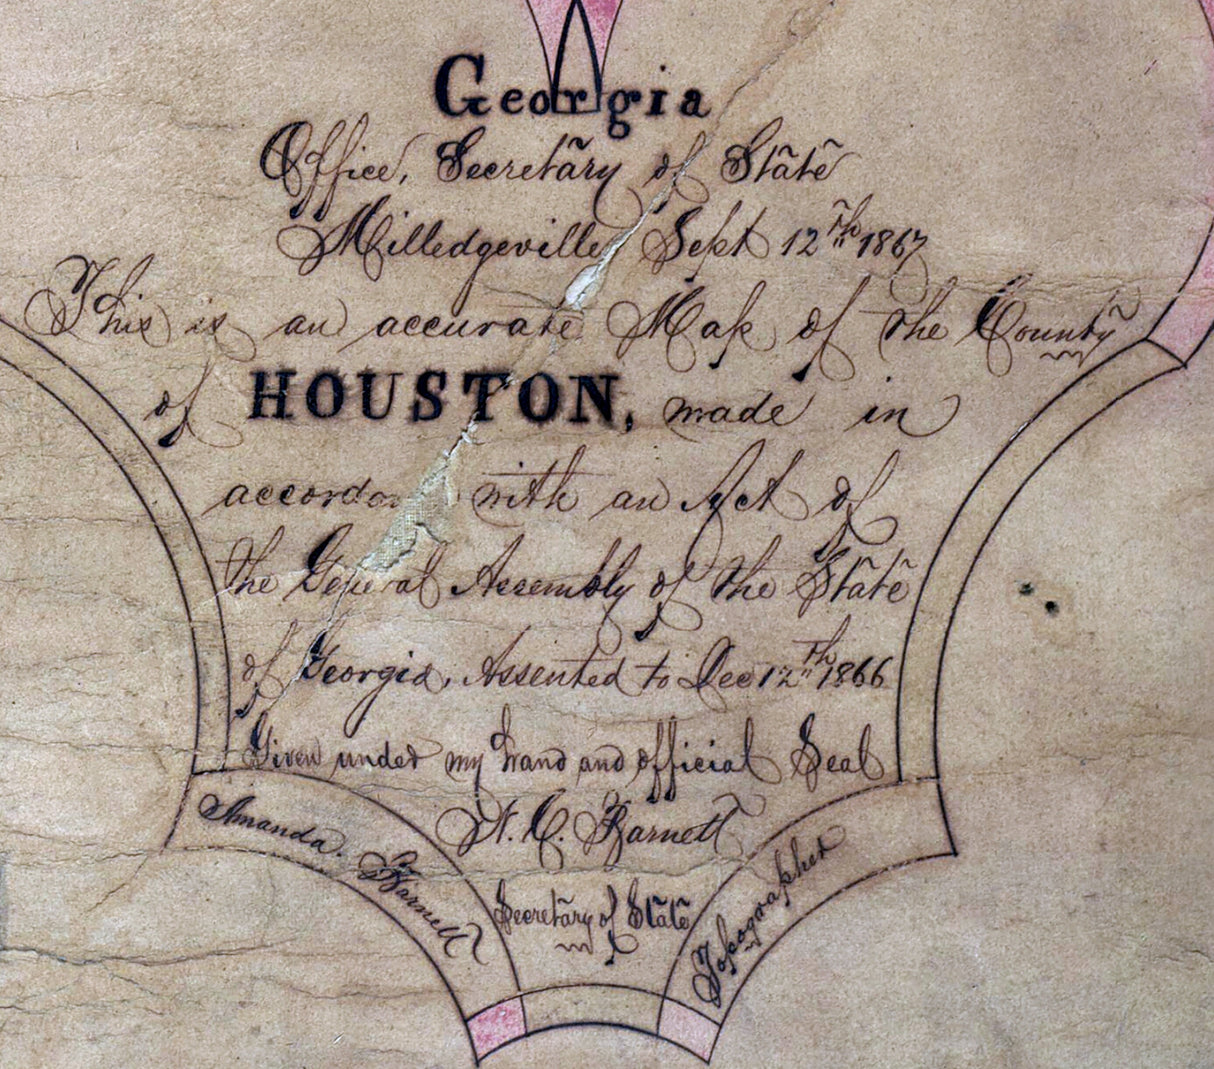 Georgia
Office, Secretary of State
Milledgeville Sept 12th 1867
This is an accurate Map of the County
of HOUSTON, made in
with an Act of
the General Assembly of the State
of Georgia, Assented to Dec 12th 1866
Given under my hand and official Seal
N. C. Barnett
Secretary of State
Amanda. Barnett
Topographer